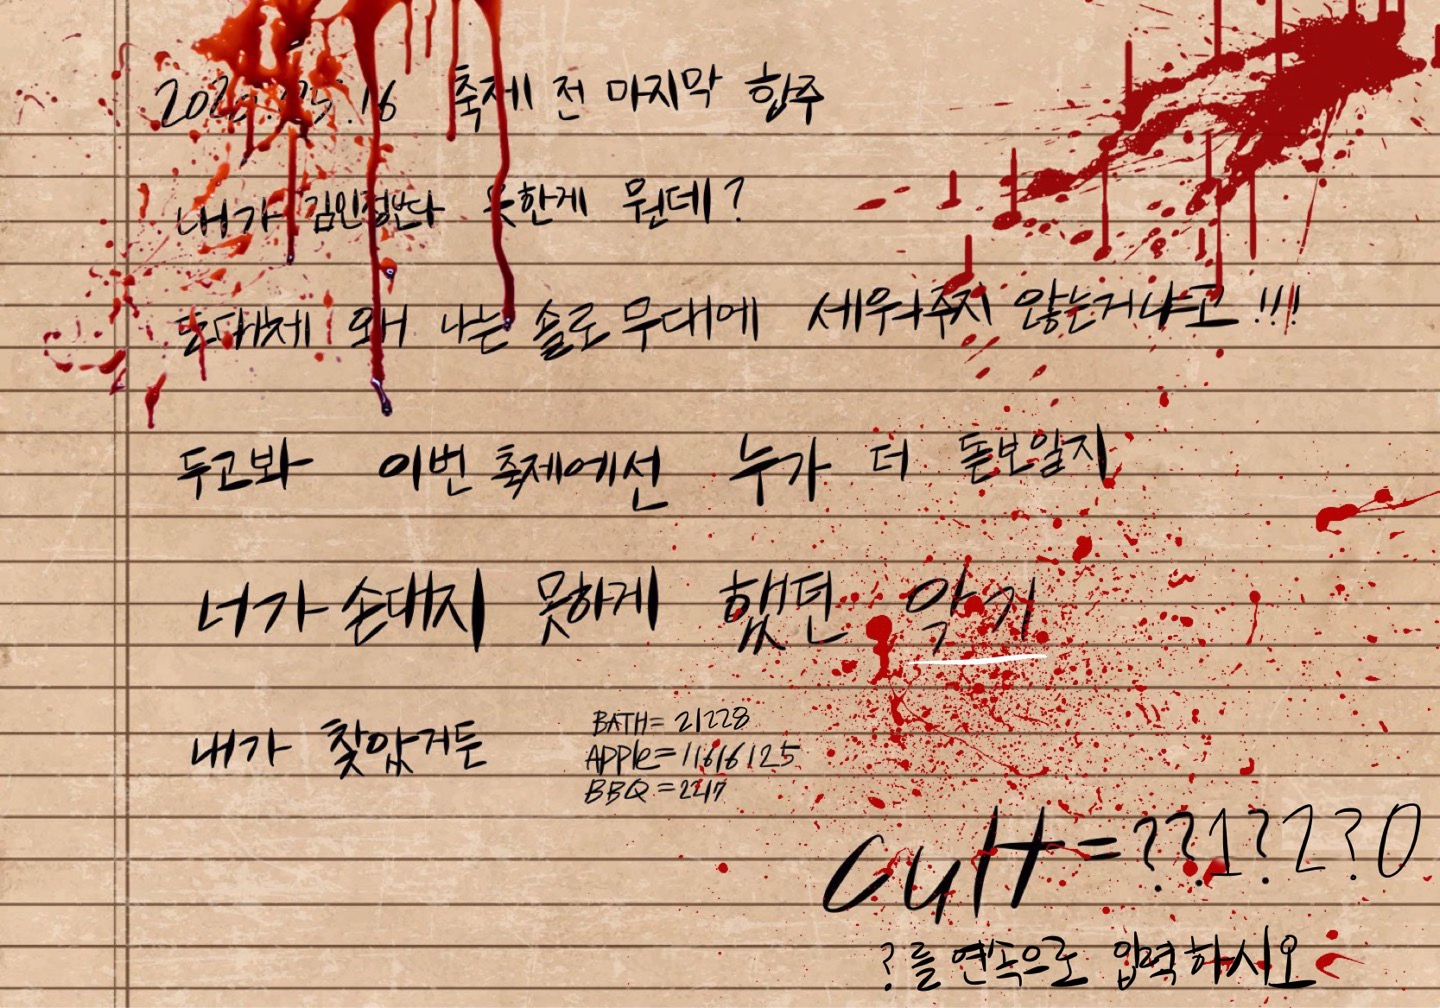 축제 전 마지막 합주
내가 김민정보다 못한게 뭔데?
도대체 왜 나는 솔로 무대에 세워주지 않는거냐고!!!
두고봐 이번 축제에선 누가 더 돋보일지
너가 손대지 못하게 했던 악기
내가 찾았거든
BATH=21228
APPle=11616125
BBQ=2217
cult=??1?2?0
?를 연속으로 입력하시오